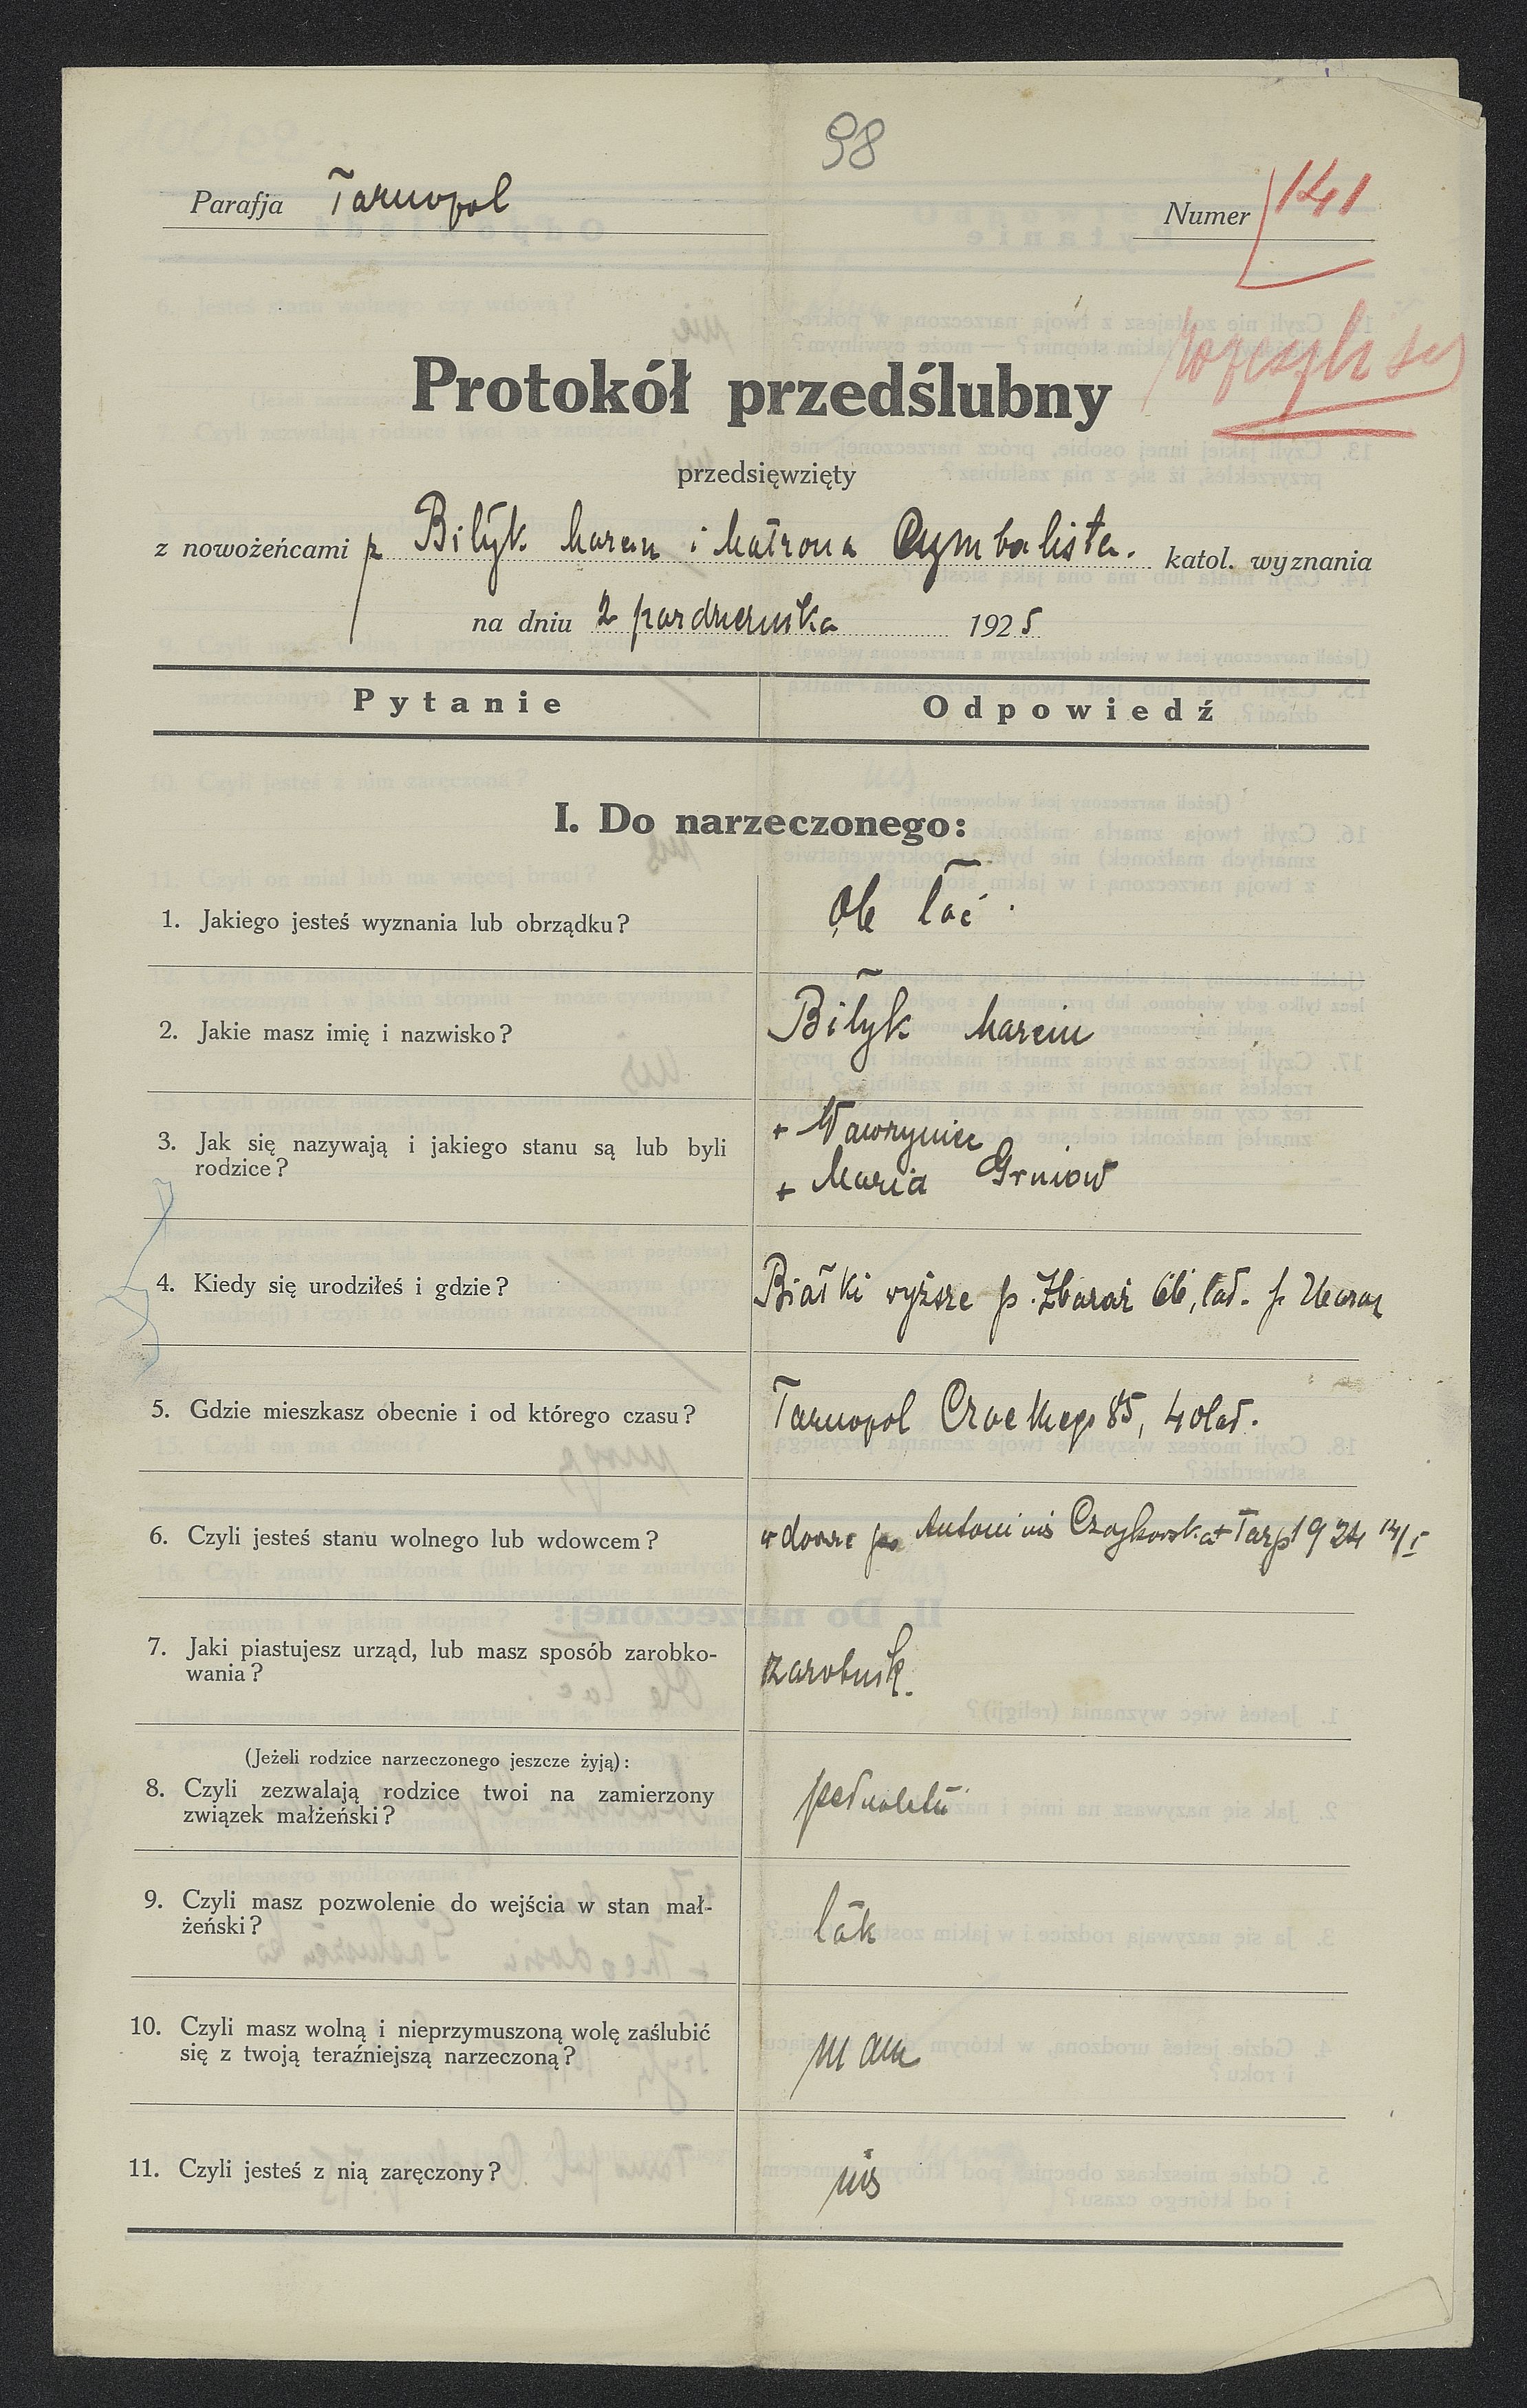 98
Parafja Tarnopol
Numer 141
Protokół przedślubny
przedsięwzięty
z nowożeńcami p Biłyk Marcin i Matrona Cymbalista. katol. wyznania
na dniu 2 pazdziernika 1925
Pytanie Odpowiedź
I. Do narzeczonego:
1. Jakiego jesteś wyznania lub obrządku? Ob łać.
2. Jakie masz imię i nazwisko? Biłyk Marcin
3. Jak się nazywają i jakiego stanu są lub byli
rodzice?
+ Wawrzyniec
+ Maria Gruiow
4. Kiedy się urodziłeś i gdzie? Białki wyższe p. Zbaraż 66, lat. p. Zbaraż
5. Gdzie mieszkasz obecnie i od którego czasu? Tarnopol Czackiego 85, 40 lat.
6. Czyli jesteś stanu wolnego lub wdowcem? wdowiec po Antoninie Czajkowska + Tarp 1924 14/I
7. Jaki piastujesz urząd, lub masz sposób zarobko-
wania?
zarobnik.
(Jeżeli rodzice narzeczonego jeszcze żyją):
8. Czyli zezwalają rodzice twoi na zamierzony
związek małżeński?
pełnoletni
9. Czyli masz pozwolenie do wejścia w stan mał-
żeński?
tak
10. Czyli masz wolną i nieprzymuszoną wolę zaślubić
się z twoją teraźniejszą narzeczoną?
mam
11. Czyli jesteś z nią zaręczony? nie